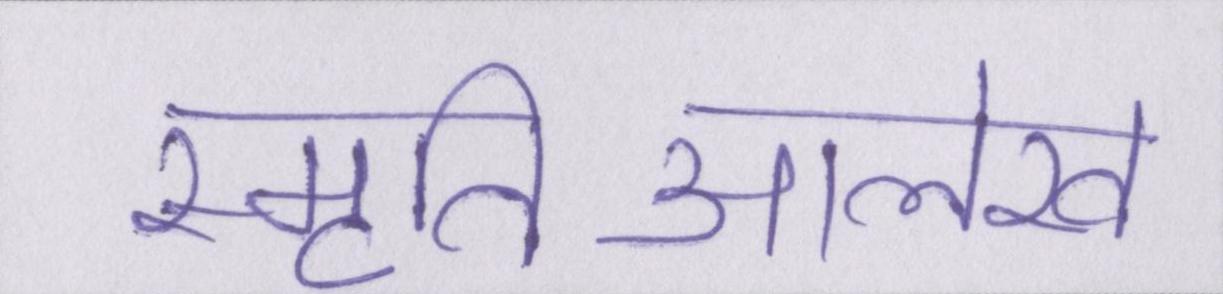 स्मृति आलेख